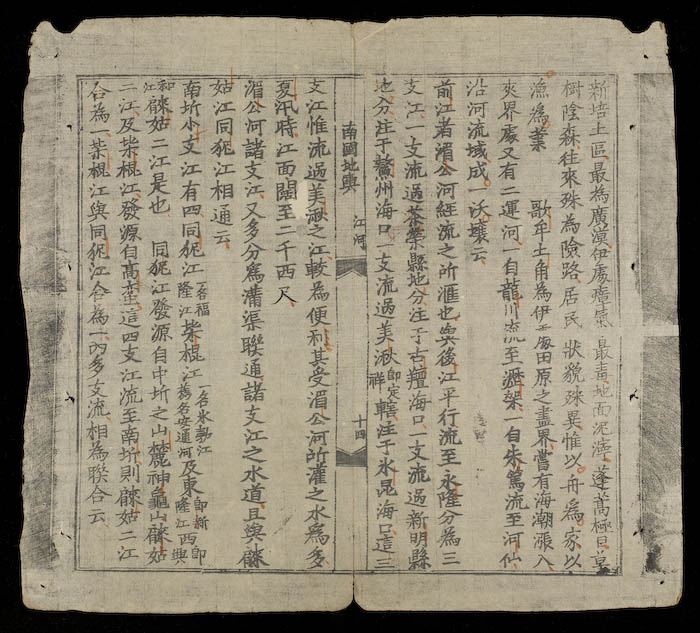 新培土區最為廣漠伊處瘴氣最毒地面泥濘蓬蒿極目草
樹陰森往來殊為險路居民狀貌殊異惟以舟為家以
漁為業　歌牟土角為伊處田原之盡界嘗有海潮漲入
夾界處又有二運河一自龍川流至瀝架一自朱篤流至河仙
沿河流域成一沃壤云
前江者湄公河經流之所滙也與後江平行流至永隆分為三
支江一支流過茶榮縣地分注于古䍬海口一支流過新明縣
地分注于鰲州海口一支流過美湫即定祥轄注于氷昆海口這三
南國地輿　江河　十四
支江惟流過美湫之江較為便利其受湄公河所灌之水為多
夏汛時江面闊至二千西尺
湄公河諸支江又多分為溝渠聯通諸支江之水道且與餗
姑江同狔江相通云
南圻小支江有四同狔江一名福隆江柴棍江一名氷九江舊名安通河及東即新隆江西即與
和江餗姑二江是也　同狔江發源自中圻之山麓神龜山餗姑
二江及柴棍江發源自高蠻這四支江流至南圻則餗姑二江
合為一柴棍江與同狔江合為一而多支流相為聯合云